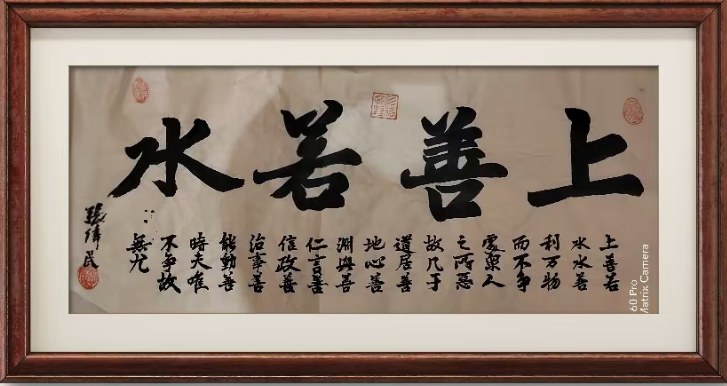 上善若水
上善若
水水善
利万物
而不争
處衆人
之所惡
故几于
道居善
地心善
渊與善
仁言善
信政善
治事善
能動善
時夫唯
不争故
無尤
60 Pro
Matrix Camera